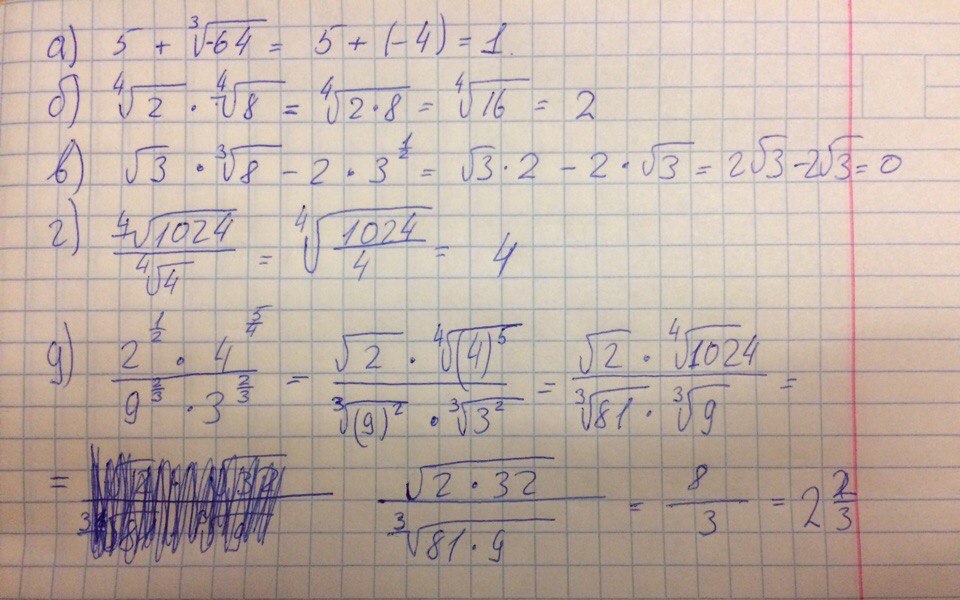 а) 5 + ∛(-64) = 5 + (-4) = 1.
б) ∜2 · ∜8 = ∜(2·8) = ∜16 = 2
в) √3 · ∛8 - 2 · 3^(1/2) = √3 · 2 - 2 · √3 = 2√3 - 2√3 = 0
г) ∜1024 / ∜4 = ∜(1024/4) = 4
д) (2^(1/2) · 4^(5/4)) / (9^(2/3) · 3^(2/3)) = (√2 · ∜((4)^5)) / (∛((9)^2) · ∛(3^2)) = (√2 · ∜1024) / (∛81 · ∛9) =
= √(2·32) / ∛(81·9) = 8/3 = 2 2/3